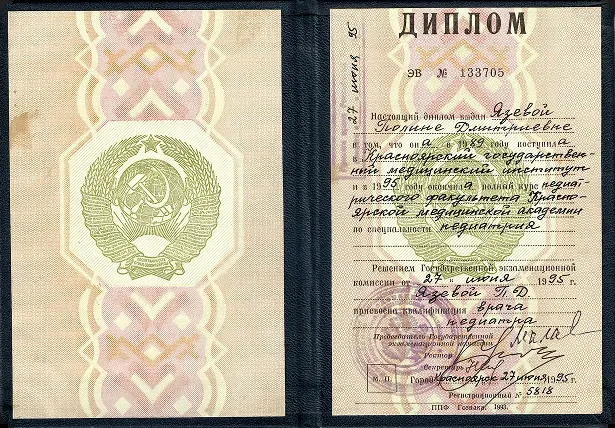 ДИПЛОМ
ЭВ № 133705
27 июня 95
Настоящий диплом выдан Язевой
Полине Дмитриевне
в том, что она в 1989 году поступила
в Красноярский государствен-
ный медицинский институт
и в 1995 году окончила полный курс педиат-
рического факультета Красно-
ярской медицинской академии
по специальности педиатрия
Решением Государственной экзаменационной
комиссии от 27 июня 1995 г.
Язевой П.Д.
присвоена квалификация врача
педиатра
Председатель Государственной
экзаменационной комиссии
Ректор
Секретарь
М. П.
Город Красноярск 27 июня 1995 г.
Регистрационный № 5818
ППФ Гознака. 1993.